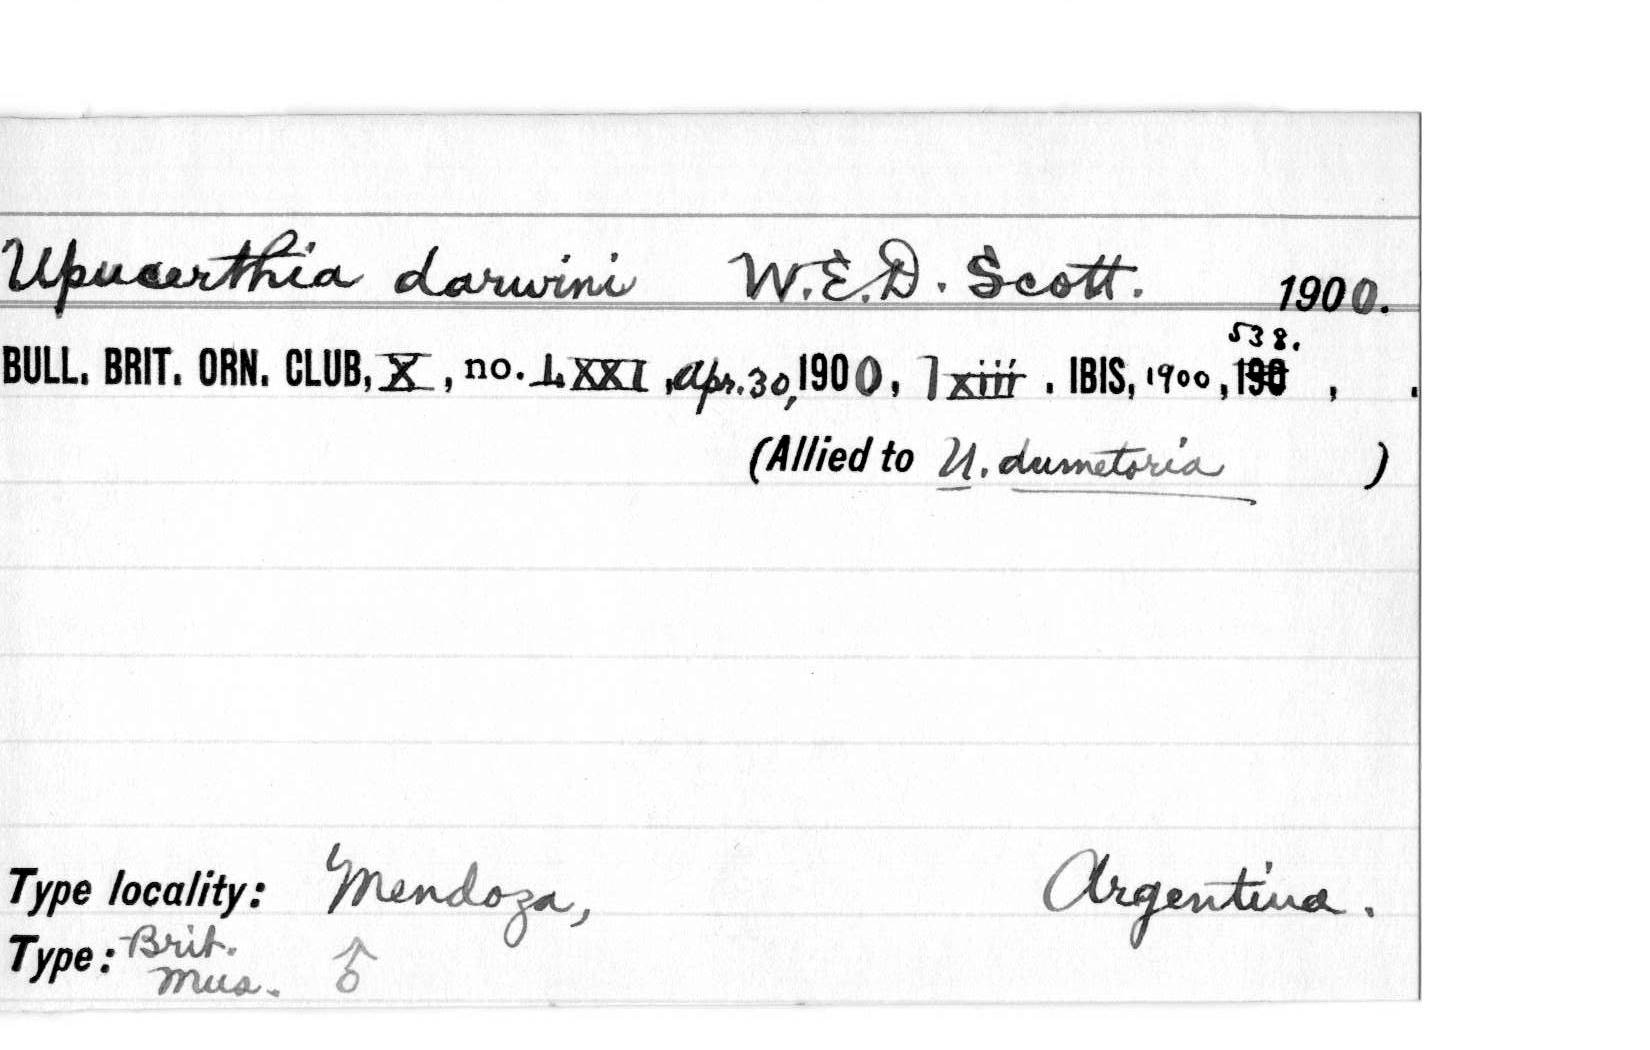 Upucerthia darwini W.E.D. Scott. 1900.
538.
BULL. BRIT. ORN. CLUB, X, no. LXXI, Apr. 30, 1900, lxiii. IBIS, 1900, 190 , .
(Allied to U. dumetoria )
Type locality: Mendoza, Argentina.
Type: Brit. Mus. ♂